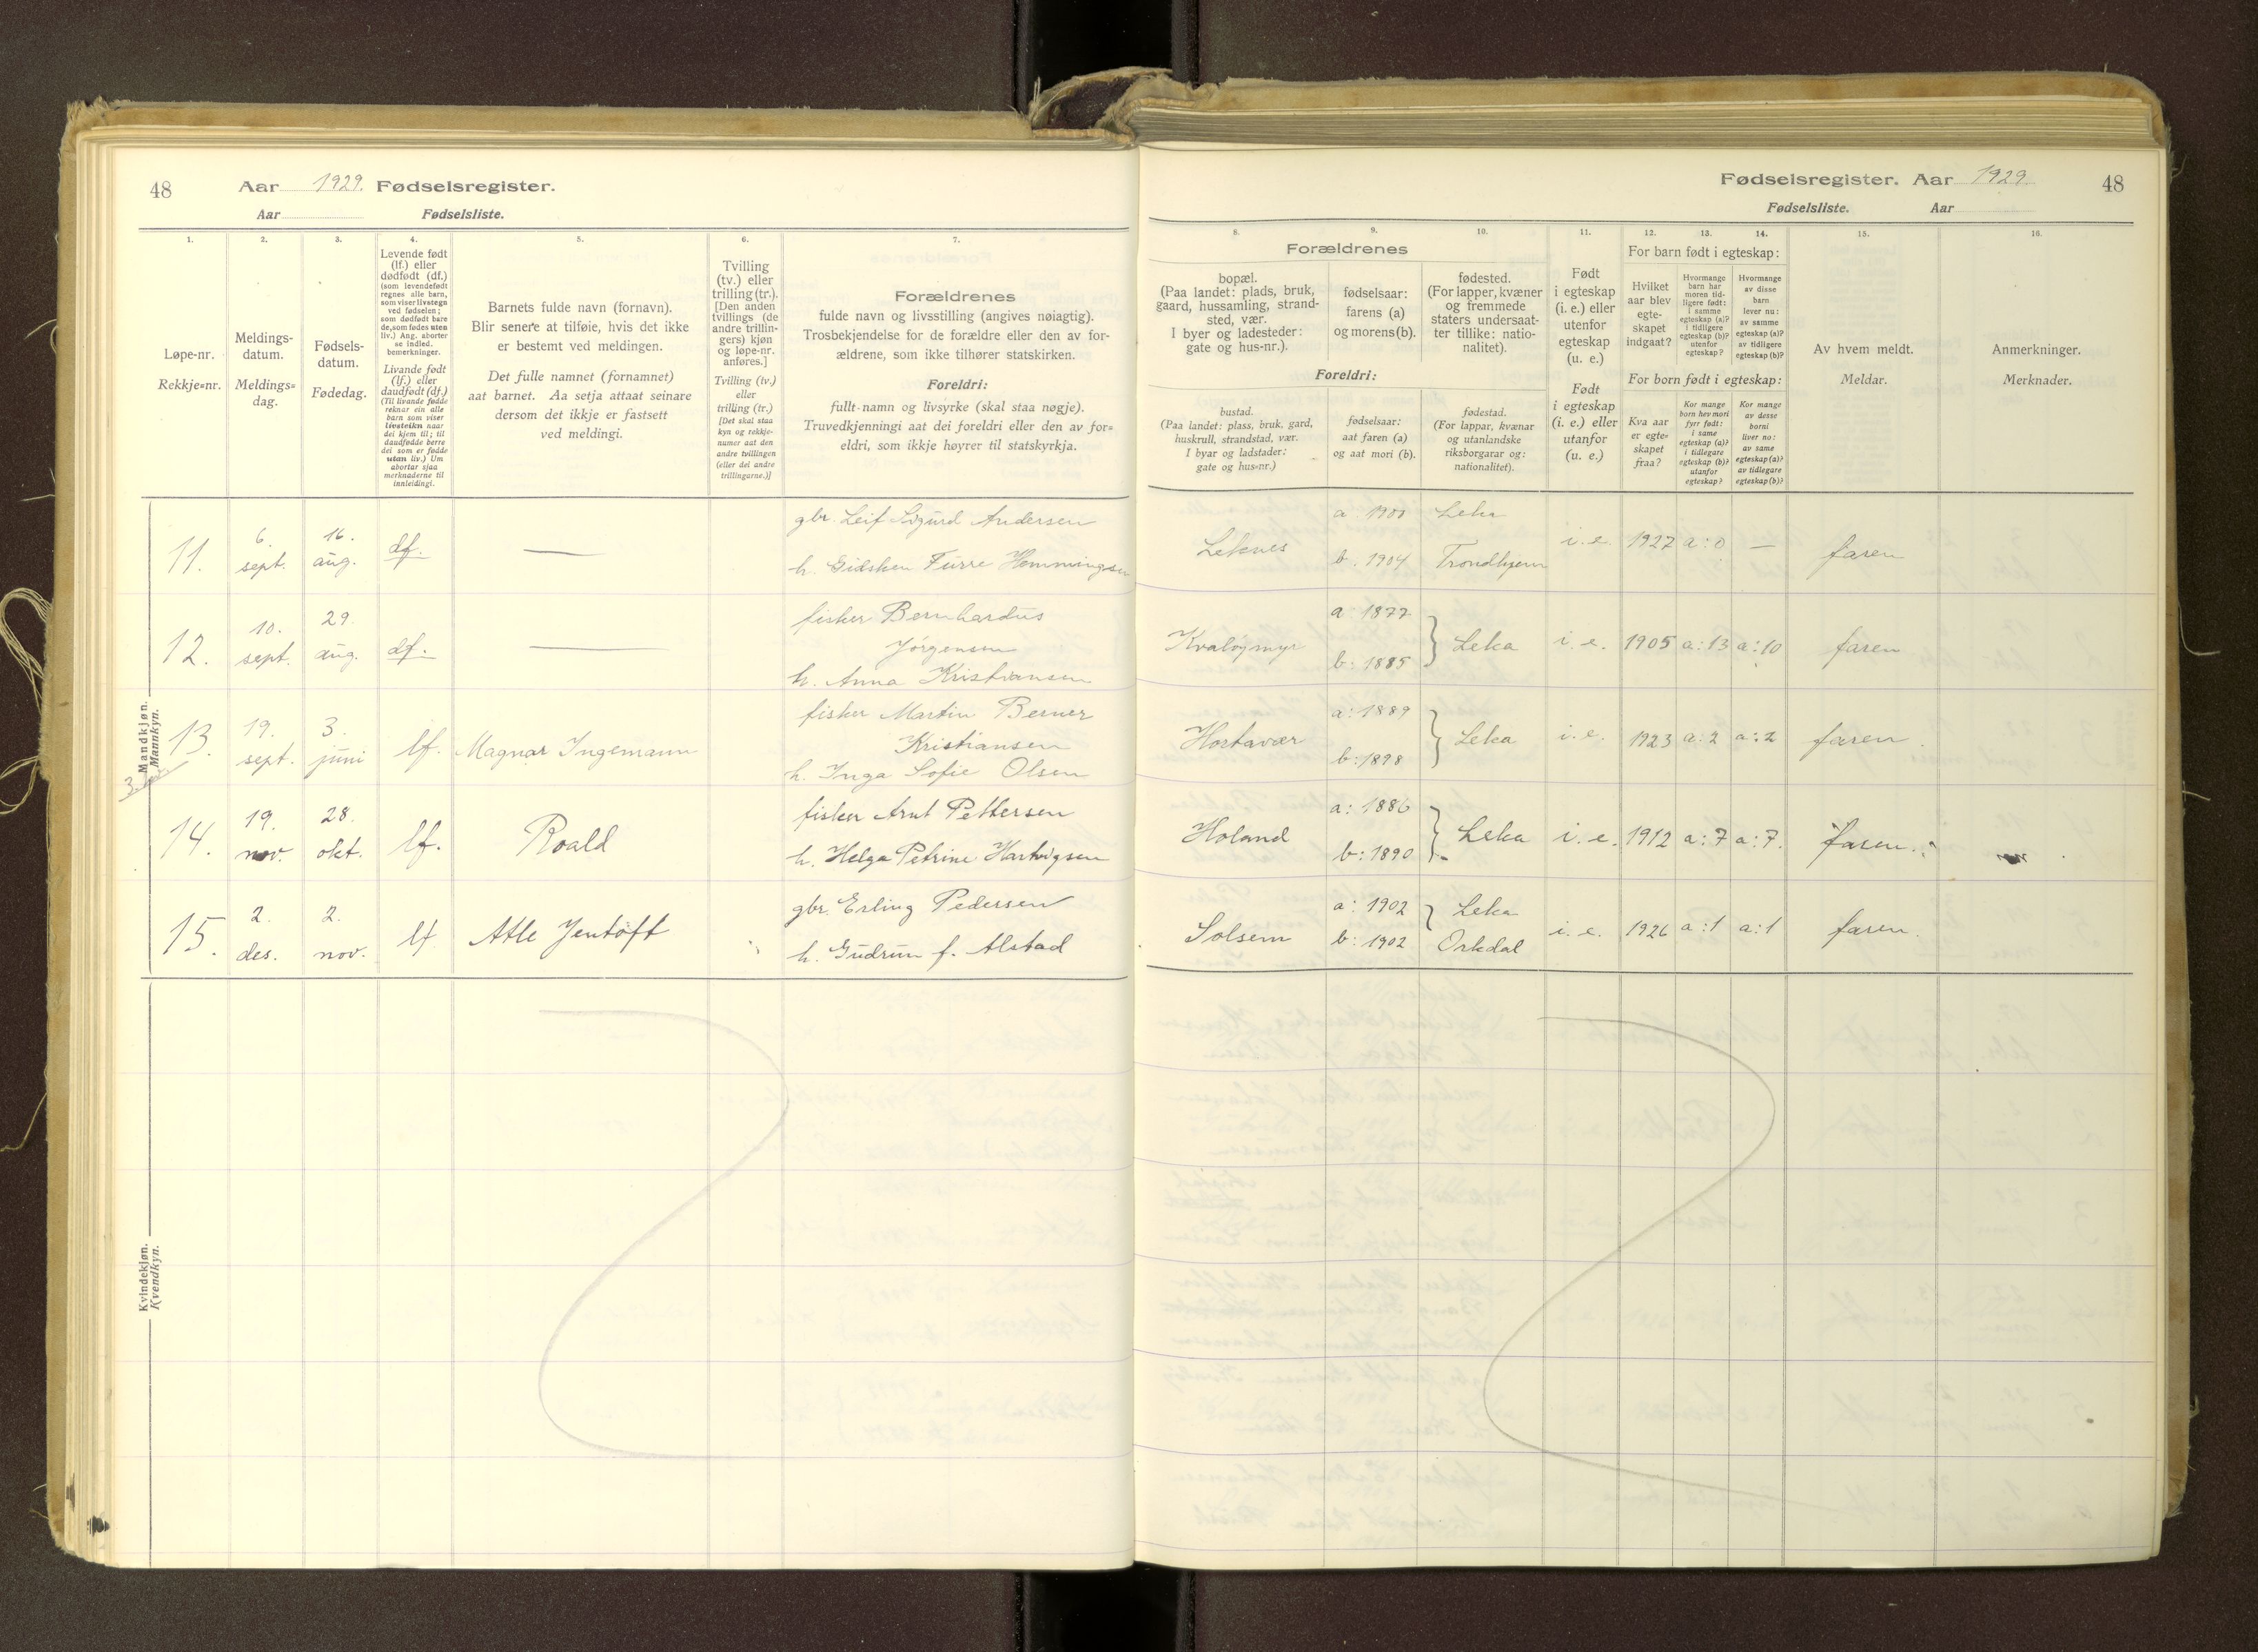 48 Aar 1929. Fødselsregister.
Aar Fødselsliste.
Fødselsregister. Aar 1929. 48
Fødselsliste. Aar
1. 2. 3. 4. 5. 6. 7.
Løpe-nr.
Rekkje=nr.
Meldings-
datum.
Meldings=
dag.
Fødsels-
datum.
Fødedag.
Levende født
(lf.) eller
dødfødt (df.)
(som levendefødt
regnes alle barn,
som viser livstegn
ved fødselen;
som dødfødt bare
de, som fødes uten
liv.) Ang. aborter
se indled.
bemerkninger.
Livande født
(lf.) eller
daudfødt (df.)
(Til livande fødde
reknar ein alle
barn som viser
livsteikn naar
dei kjem til; til
daudfødde berre
dei som er fødde
utan liv.) Um
abortar sjaa
merknaderne til
innleidingi.
Barnets fulde navn (fornavn).
Blir senere at tilføie, hvis det ikke
er bestemt ved meldingen.
Det fulle namnet (fornamnet)
aat barnet. Aa setja attaat seinare
dersom det ikkje er fastsett
ved meldingi.
Tvilling
(tv.) eller
trilling (tr.).
[Den anden
tvillings (de
andre trillin-
gers) kjøn
og løpe-nr.
anføres.]
Tvilling (tv.)
eller
trilling (tr.)
[Det skal staa
kyn og rekkje-
numer aat den
andre tvillingen
(eller dei andre
trillingarne.)]
Forældrenes
fulde navn og livsstilling (angives nøiagtig).
Trosbekjendelse for de forældre eller den av for-
ældrene, som ikke tilhører statskirken.
Foreldri:
fullt namn og livsyrke (skal staa nøgje).
Truvedkjenningi aat dei foreldri eller den av for=
eldri, som ikkje høyrer til statskyrkja.
8. 9. 10. 11. 12. 13. 14. 15. 16.
Forældrenes
bopæl.
(Paa landet: plads, bruk,
gaard, hussamling, strand-
sted, vær.
I byer og ladesteder:
gate og hus-nr.).
fødselsaar:
farens (a)
og morens (b).
fødested.
(For lapper, kvæner
og fremmede
staters undersaat-
ter tillike: natio-
nalitet).
Foreldri:
bustad.
(Paa landet: plass, bruk, gard,
huskrull, strandstad, vær.
I byar og ladstader:
gate og hus-nr.)
fødselsaar:
aat faren (a)
og aat mori (b).
fødestad.
(For lappar, kvænar
og utanlandske
riksborgarar og:
nationalitet).
Født
i egteskap
(i. e.) eller
utenfor
egteskap
(u. e.)
Født
i egteskap
(i. e.) eller
utanfor
(u. e.)
For barn født i egteskap:
Hvilket
aar blev
egte-
skapet
indgaat?
Hvormange
barn har
moren tid-
ligere født:
i samme
egteskap (a)?
i tidligere
egteskap (b)?
utenfor
egteskap?
Hvormange
av disse
barn
lever nu:
av samme
egteskap (a)?
av tidligere
egteskap (b)?
For born født i egteskap:
Kva aar
er egte-
skapet
fraa?
Kor mange
born hev mori
fyrr født:
i same
egteskap (a)?
i tidlegare
egteskap (b)?
utanfor
egteskap?
Kor mange
av desse
borni
liver no:
av same
egteskap (a)?
av tidlegare
egteskap (b)?
Av hvem meldt.
Meldar.
Anmerkninger.
Merknader.
Mandkjøn.
Mannkyn.
11. 6. sept. 16. aug. df. — gbr. Leif Sigurd Andersen
h. Gidsken Furre Hemmingsen
Leknes a 1900 b. 1904 Leka Trondhjem i. e. 1927 a: 0 — faren
12. 10. sept. 29. aug. df. — fisker Bernhardus
Jørgensen
h. Anna Kristiansen
Kvaløymyr a 1877 b: 1885 } Leka i. e. 1905 a: 13 a: 10 faren
13. 19. sept. 3. juni lf. Magnar Ingemann fisker Martin Berner
Kristiansen
h. Inga Sofie Olsen
Hortavær a: 1889 b: 1898 } Leka i. e. 1923 a: 2 a: 2 faren.
14. 19. nov. 28. okt. lf. Roald fisker Arnt Pettersen
h. Helga Petrine Hartvigsen
Holand a: 1886 b: 1890 } Leka i. e. 1912 a: 7 a: 7. faren.
15. 2. des. 2. nov. lf Atle Jentoft gbr. Erling Pedersen
h. Gudrun f. Alstad
Solsem a: 1902 b: 1902 } Leka Orkdal i. e. 1926 a: 1 a: 1 faren.
Kvindekjøn.
Kvendkyn.